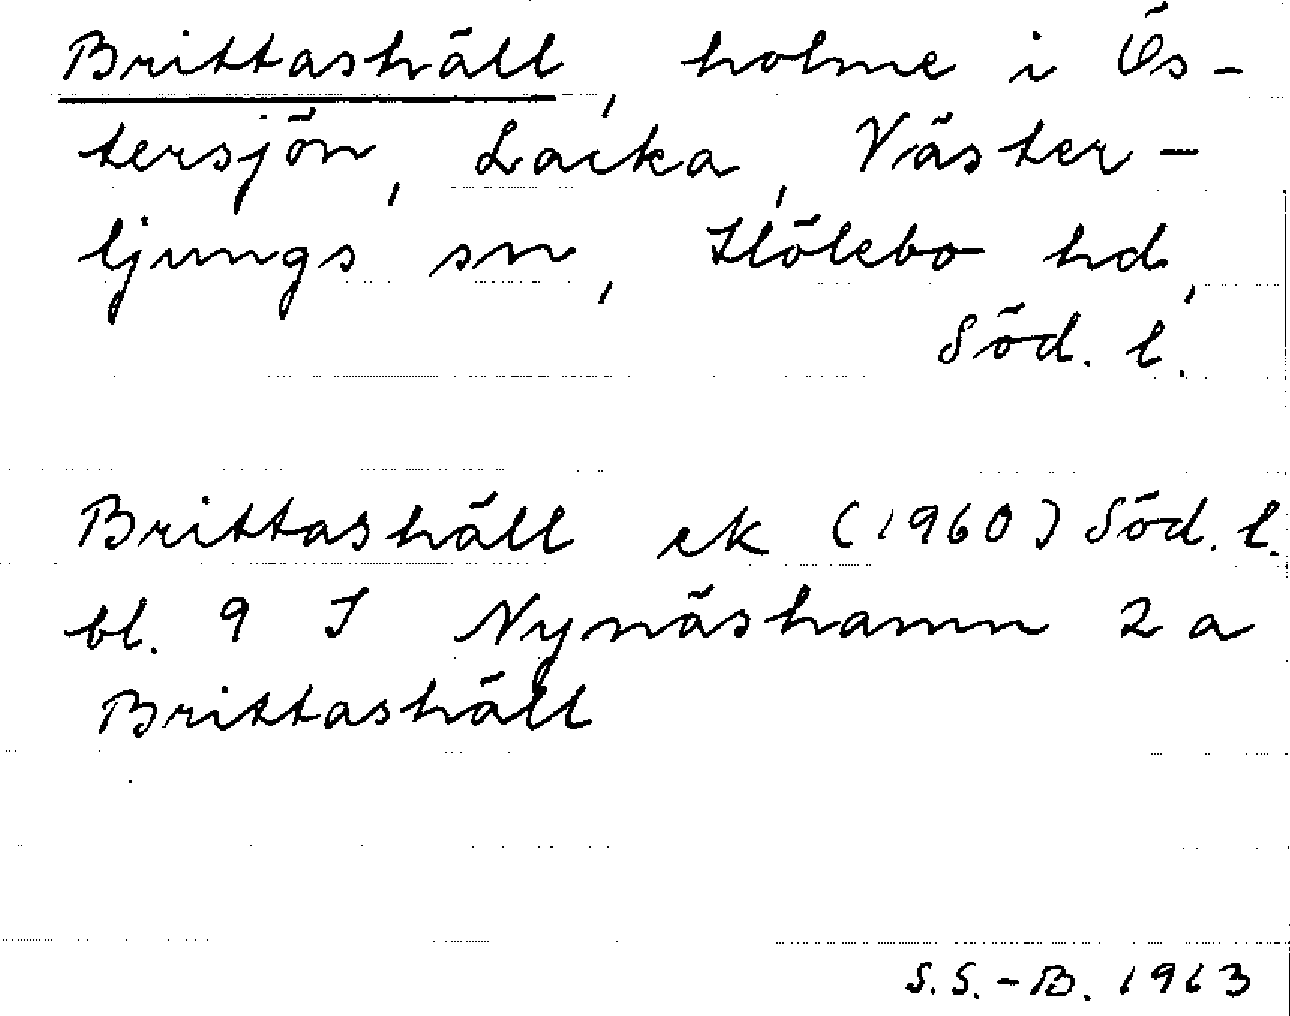 Brittashäll, holme i Ös-
tersjön, Lacka, Väster-
ljungs sn, Hölebo hd,
Söd. l.
Brittashäll ek (1960) Söd. l.
bl. 9 I Nynäshamn 2 a
Brittashäll
S.S.-B. 1963